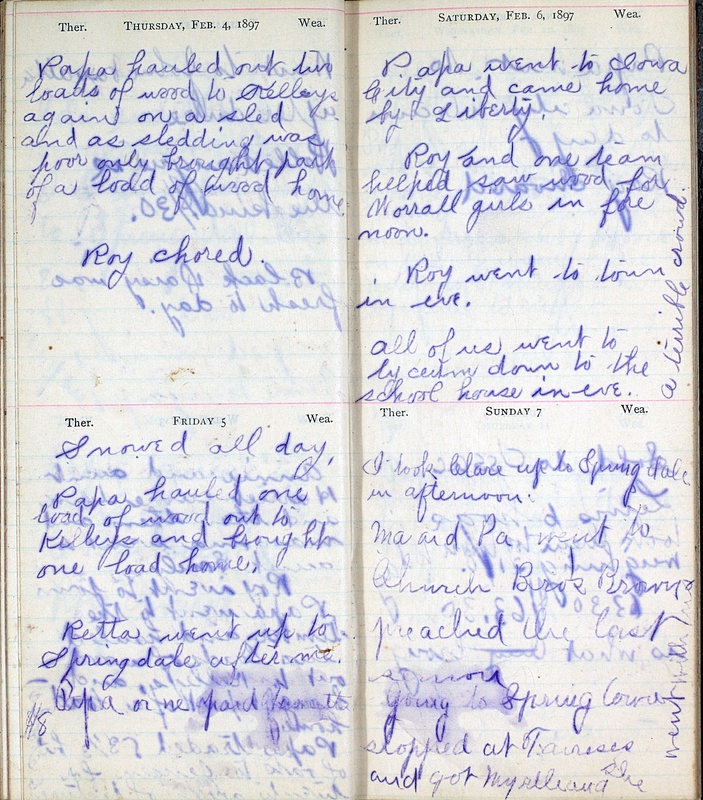 Ther. THURSDAY, FEB. 4, 1897 Wea.
Papa hauled out two
loads of wood to Kelleys
again on a sled
and as sledding was
poor only brought part
of a load of wood home
Roy chored.
Ther. FRIDAY 5 Wea.
Snowed all day,
Papa hauled one
load of wood out to
Kelleys and brought
one load home.
Retta went up to
Springdale after me.
Papa or me paid
$8
Ther. SATURDAY, FEB. 6, 1897 Wea.
Papa went to Iowa
City and came home
by Liberty.
Roy and one team
helped saw wood for
Worrall girls in fore
noon.
Roy went to town
in eve.
all of us went to
lyceum down to the
school house in eve.
a terrible crowd
Ther. SUNDAY 7 Wea.
I took Clare up to Springdale
in afternoon.
Ma and Pa went to
Church Bro's Brown
preached the last
sermon
going to Spring
stopped at
and got Myrtle and
she
went with